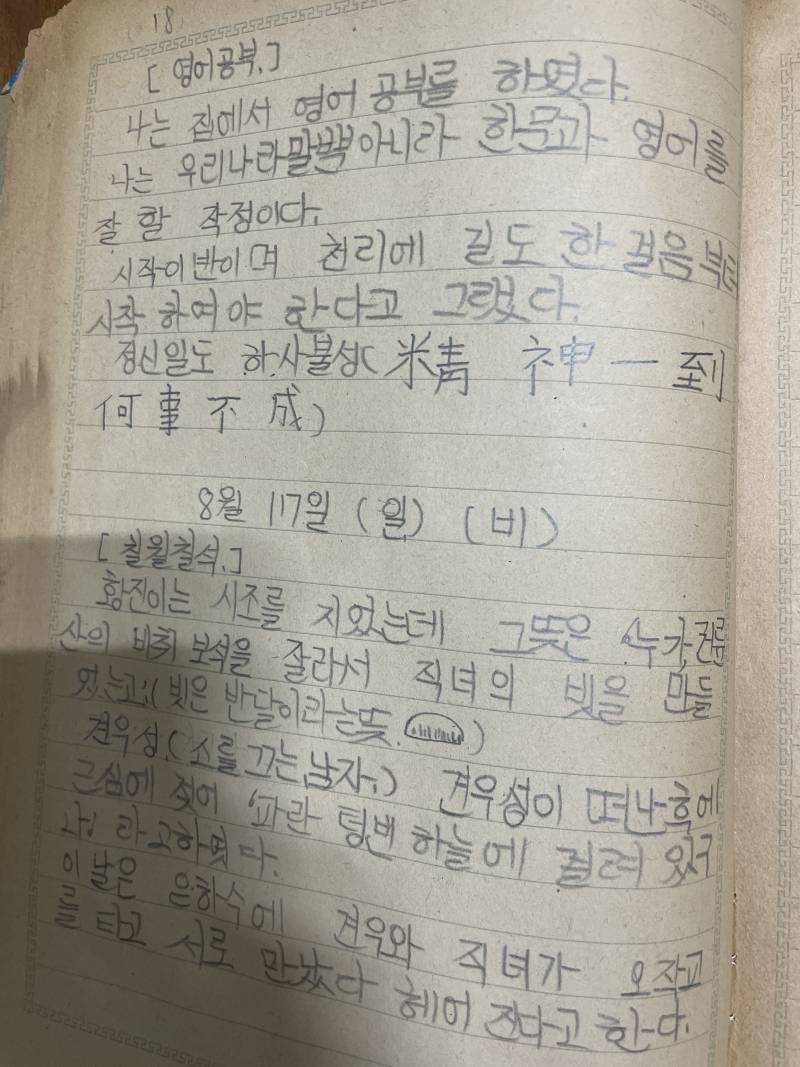 18
[영어공부.]
나는 집에서 영어 공부를 하였다.
나는 우리나라말뿐아니라 한문과 영어를
잘 할 작정이다.
시작이 반이며 천리에 길도 한 걸음 부터
시작 하여야 한다고 그랬다.
정신일도 하사불성(精 神 一 到
何 事 不 成)
8월 17일 (일) (비)
[칠월칠석.]
황진이는 시조를 지었는데 그뜻은 '누가, 곤륜
산의 비취 보석을 잘라서 직녀의 빗을 만들
었는고;(빗은 반달이라는뜻. )
견우성.(소를 끄는, 남자.) 견우성이 떠난 후에
근심에 젖어 '파란 텅빈 하늘에 걸려 있구
나! 라고하였다.
이 날은 은하수에 견우와 직녀가 오작교
를 타고 서로 만났다 헤어 진다고 한다.